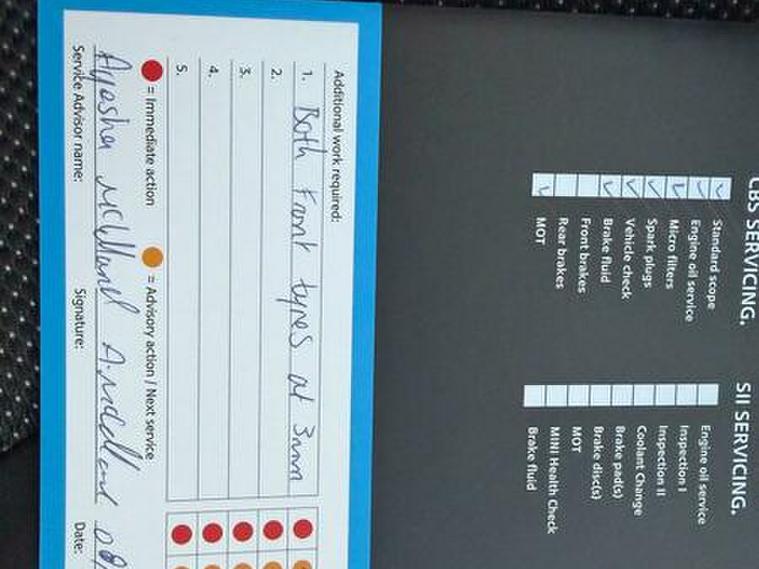 CBS SERVICING.
Standard scope
Engine oil service
Micro filters
Spark plugs
Vehicle check
Brake fluid
Front brakes
Rear brakes
MOT
SII SERVICING.
Engine oil service
Inspection I
Inspection II
Coolant Change
Brake pad(s)
Brake disc(s)
MOT
MINI Health Check
Brake fluid
Additional work required:
1. Both Front tyres at 3mm
2.
3.
4.
5.
= Immediate action = Advisory action / Next service
Ayesha
Service Advisor name: Signature: Date: